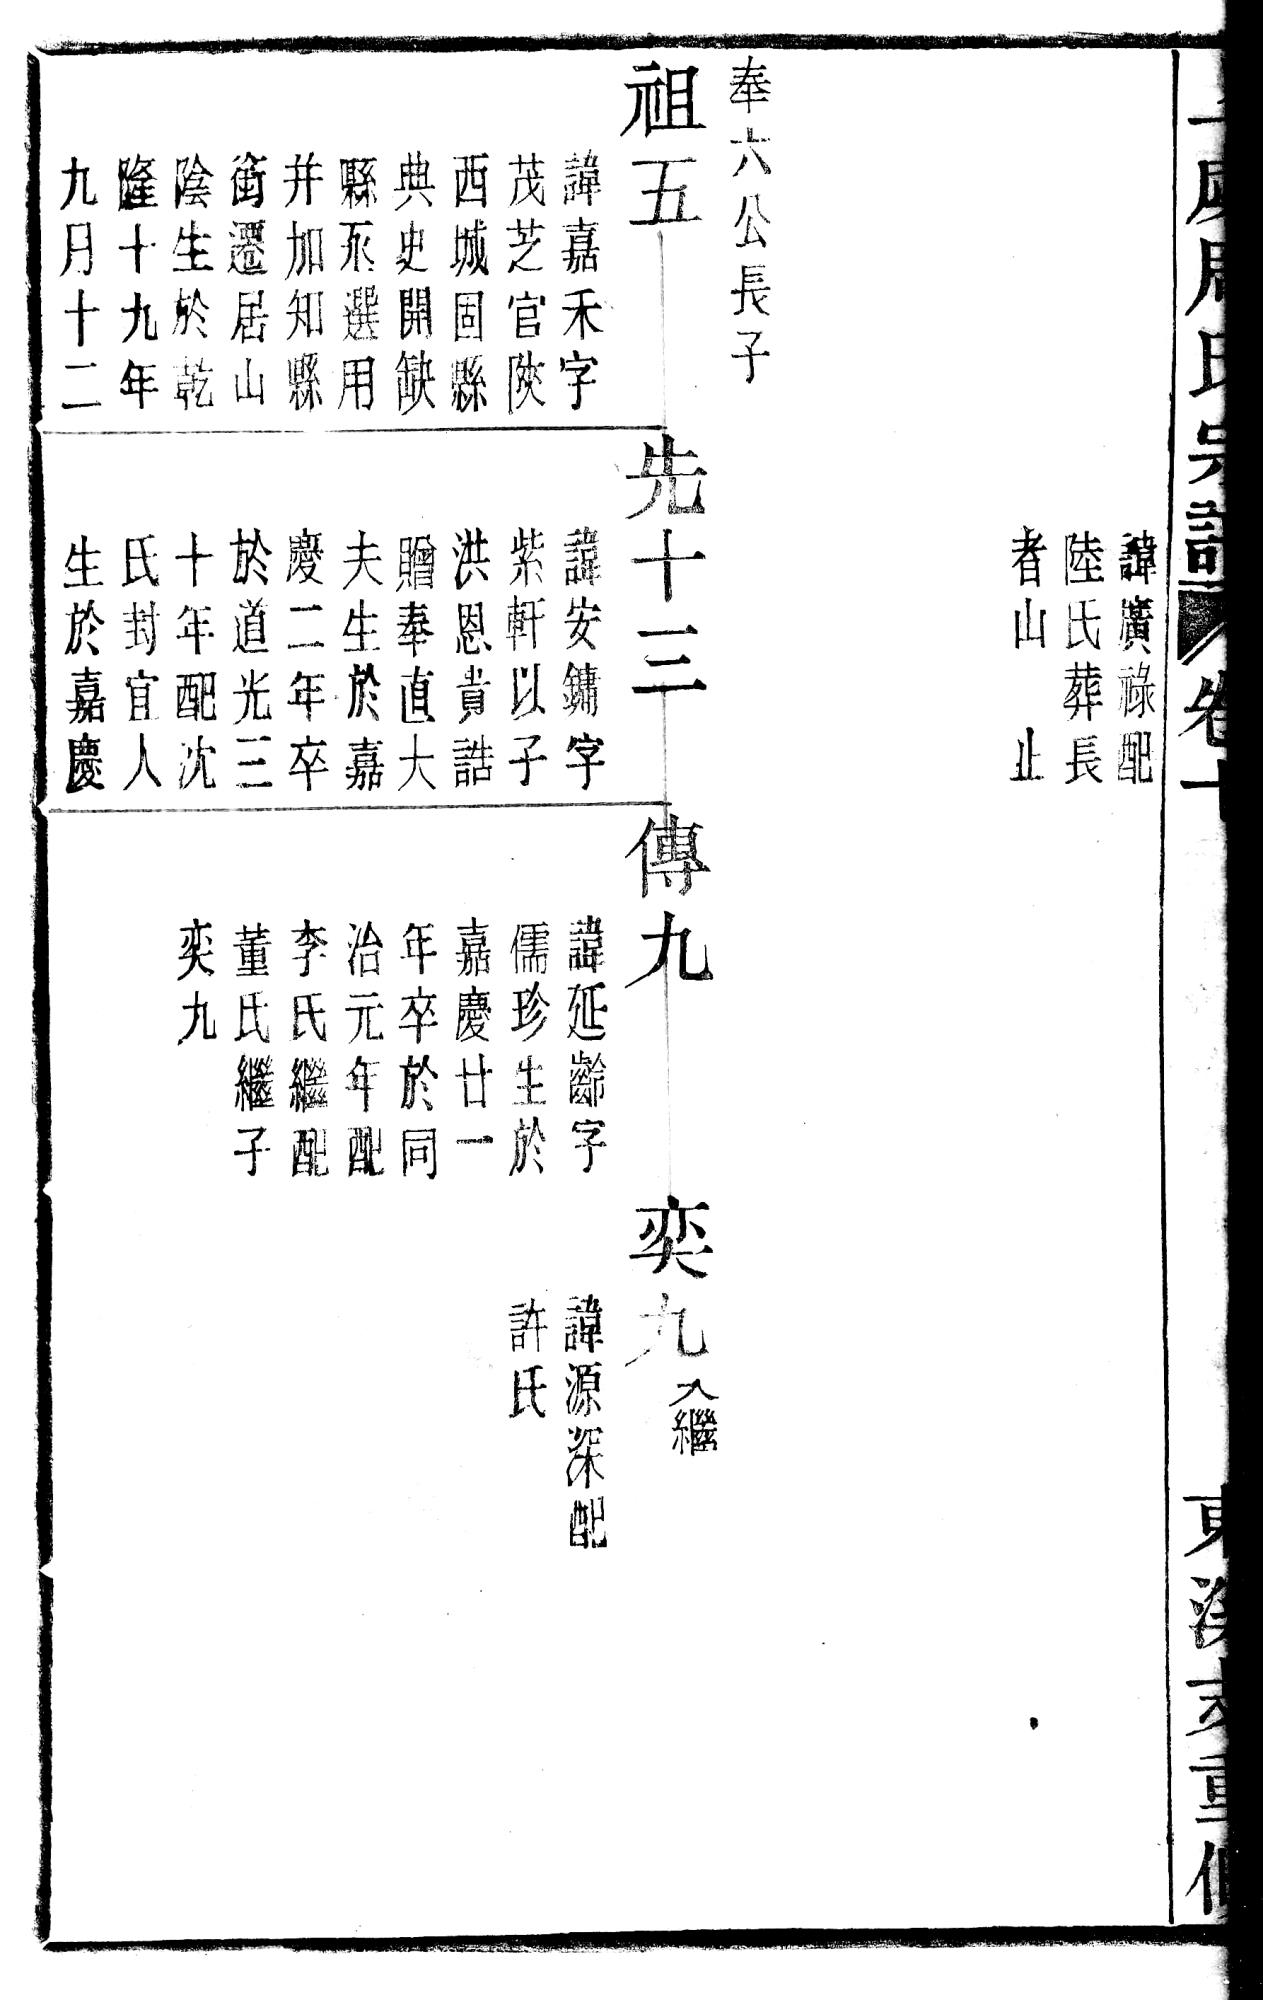 周氏宗譜
卷十
重修
諱廣祿配
陸氏葬長
者山　止
奉六公長子
祖五
諱嘉禾字
茂芝官陝
西城固縣
典史開缺
縣丞選用
并加知縣
銜遷居山
陰生於乾
隆十九年
九月十二
先十三
諱安鏞字
紫軒以子
洪恩貴誥
贈奉直大
夫生於嘉
慶二年卒
於道光三
十年配沈
氏封宜人
生於嘉慶
傳九
諱延齡字
儒珍生於
嘉慶廿一
年卒於同
治元年配
李氏繼配
董氏繼子
奕九
奕九
入繼
諱源深配
許氏